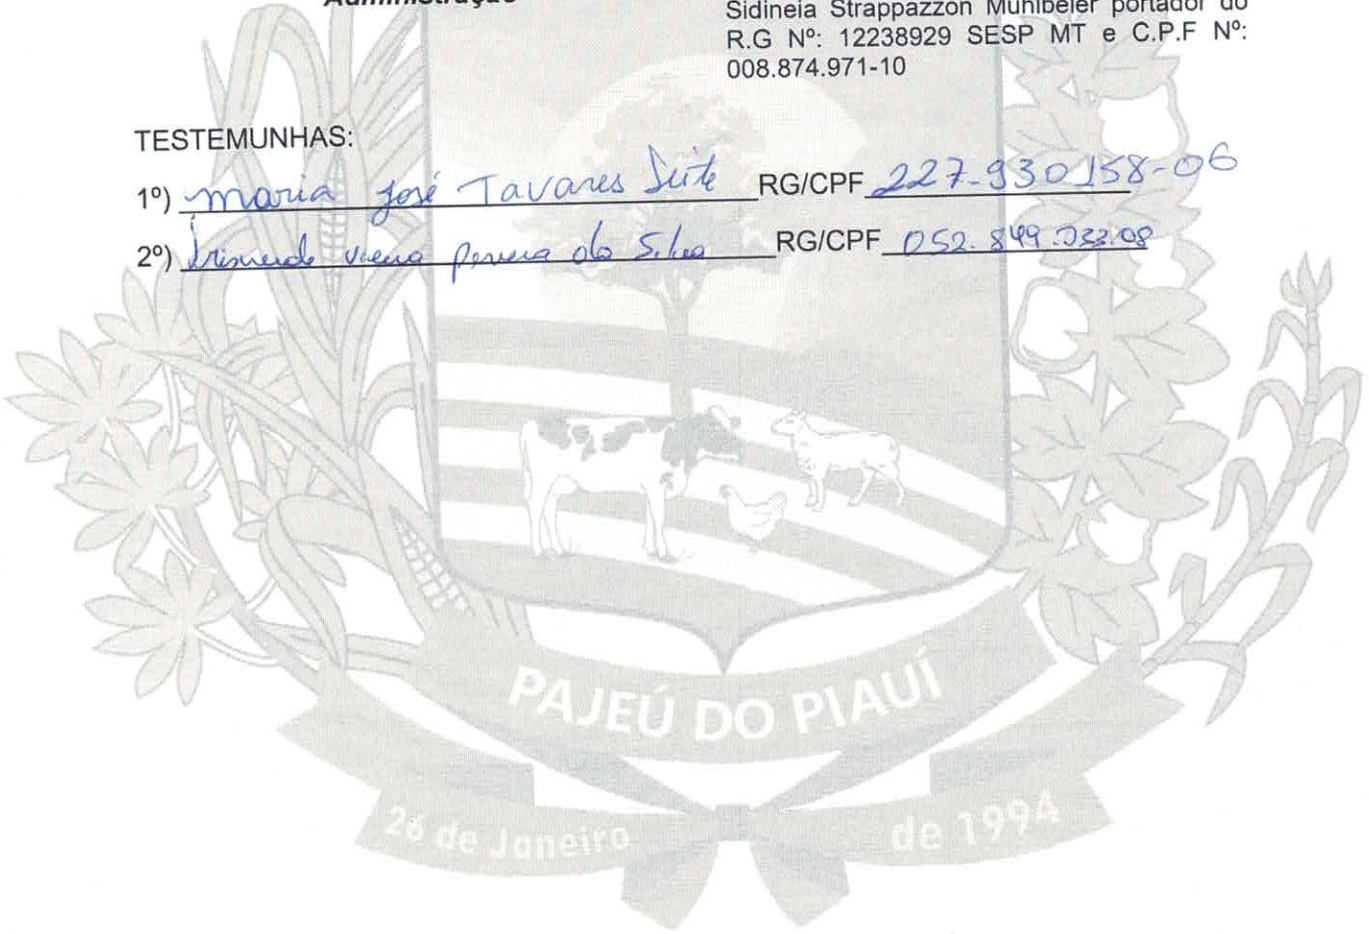 Administração
Sidineia Strappazzon Muhlbeier portador do
R.G Nº: 12238929 SESP MT e C.P.F Nº:
008.874.971-10
TESTEMUNHAS:
1º) maria José Tavares Leite RG/CPF 227-930158-06
2º) vieira pereira da Silva RG/CPF 052.849.033.08
PAJEÚ DO PIAUÍ
26 de Janeiro de 1994